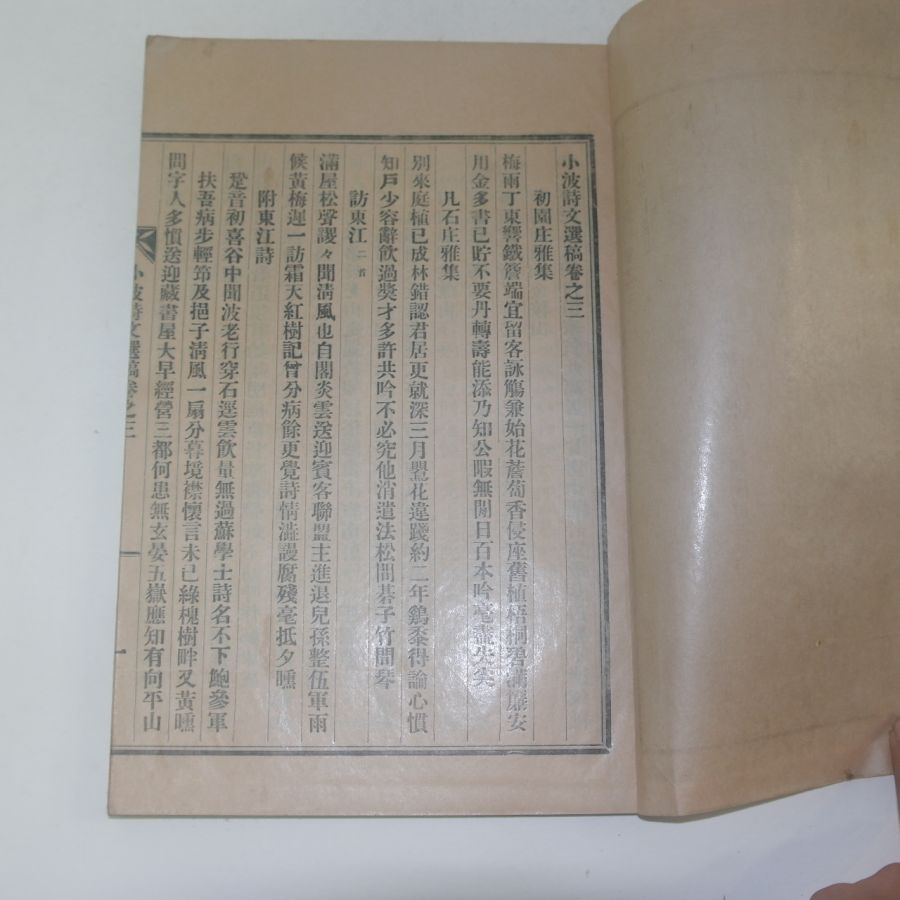 小波詩文選稿卷之三
初園庄雅集
梅雨丁東響鐵簷端宜留客詠觴兼始花薝蔔香侵座舊植梧桐碧滿簾安
用金多書已貯不要丹轉壽能添乃知公暇無閒日百本吟毫盡失尖
凡石庄雅集
別來庭植已成林錯認君居更就深三月鸎花違踐約二年鷄黍得論心慣
知戶少容辭飮過獎才多許共吟不必究他消遣法松間碁子竹間琴
訪東江 二首
滿屋松聲謖々聞淸風也自閣炎雲送迎賓客聯盟主進退兒孫整伍軍雨
候黃梅遲一訪霜天紅樹記曾分病餘更覺詩情澁謾腐殘毫抵夕曛
附東江詩
跫音初喜谷中聞波老行穿石逕雲飮量無過蘇學士詩名不下鮑參軍
扶吾病步輕筇及挹子淸風一扇分暮境襟懷言未已綠槐樹畔又黃曛
問字人多慣送迎藏書屋大早經營三都何患無玄晏五嶽應知有向平山
小波詩文選稿卷之三
一